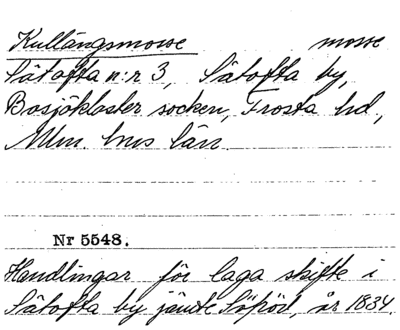 Kullängsmosse mosse
Sätofta n:r 3, Sätofta by,
Bosjökloster socken, Frosta hd,
Mlm. hus län.
Nr 5548.
Handlingar för laga skifte i
Sätofta by jämte Sjöröd, år 1834.